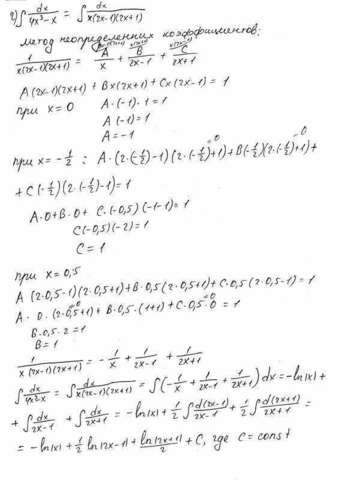 2) ∫ dx/(4x³-x) = ∫ dx/(x(2x-1)(2x+1))
метод неопределенных коэффициентов:
1/(x(2x-1)(2x+1)) = A/x + B/(2x-1) + C/(2x+1)
A(2x-1)(2x+1) + Bx(2x+1) + Cx(2x-1) = 1
при x = 0 A·(-1)·1 = 1
A(-1) = 1
A = -1
при x = -1/2 : A·(2·(-1/2)-1)(2·(-1/2)+1) + B(-1/2)(2·(-1/2)+1) +
+ C(-1/2)(2·(-1/2)-1) = 1
A·0 + B·0 + C·(-0,5)(-1-1) = 1
C(-0,5)(-2) = 1
C = 1
при x = 0,5
A(2·0,5-1)(2·0,5+1) + B·0,5(2·0,5+1) + C·0,5(2·0,5-1) = 1
A·0·(2·0,5+1) + B·0,5·(1+1) + C·0,5·0 = 1
B·0,5·2 = 1
B = 1
1/(x(2x-1)(2x+1)) = -1/x + 1/(2x-1) + 1/(2x+1)
∫ dx/(4x³-x) = ∫ dx/(x(2x-1)(2x+1)) = ∫(-1/x + 1/(2x-1) + 1/(2x+1)) dx = -ln|x| +
+ ∫ dx/(2x-1) + ∫ dx/(2x+1) = -ln|x| + 1/2 ∫ d(2x-1)/(2x-1) + 1/2 ∫ d(2x+1)/(2x+1) =
= -ln|x| + 1/2 ln|2x-1| + ln|2x+1|/2 + C, где C = const